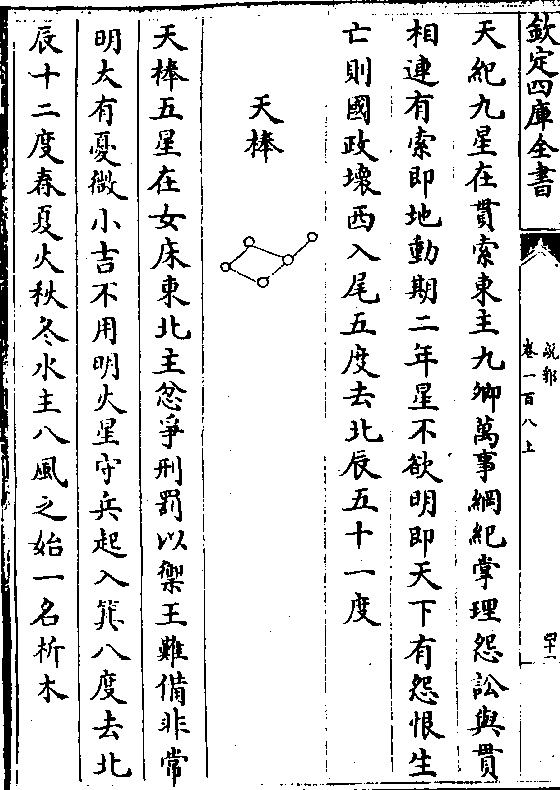 欽定四庫全書
說郛
卷一百八上
四十一
天紀九星在貫索東主九卿萬事綱紀掌理怨訟與貫
相連有索即地動期二年星不欲明即天下有怨恨生
亡則國政壞西入尾五度去北辰五十一度
天棒
天棒五星在女床東北主忿爭刑罰以禦王難備非常
明大有憂微小吉不用明火星守兵起入箕八度去北
辰十二度春夏火秋冬水主八風之始一名析木